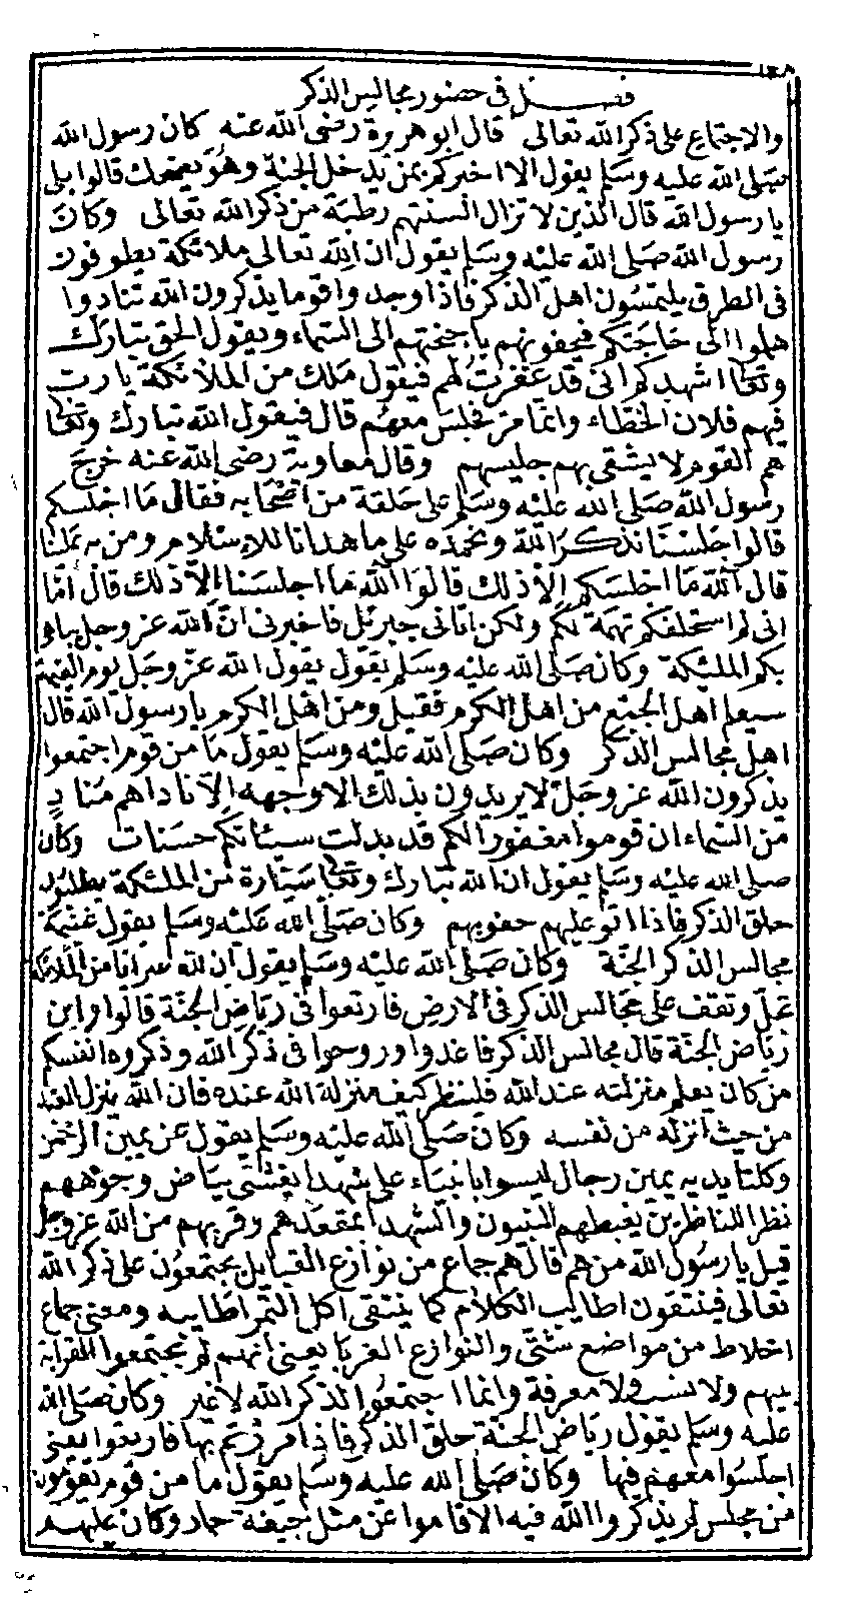 ١٤٨
فصل فى حضور مجالس الذكر
والاجتماع على ذكر الله تعالى قال ابو هريرة رضى الله عنه كان رسول الله
صلى الله عليه وسلم يقول الا اخبركم بمن يدخل الجنة وهو يضحك قالوا بلى
يا رسول الله قال الذين لا تزال السنتهم رطبة من ذكر الله تعالى وكان
رسول الله صلى الله عليه وسلم يقول ان لله تعالى ملائكة يطوفون
فى الطرق يلتمسون اهل الذكر فاذا وجدوا قوما يذكرون الله تنادوا
هلموا الى حاجتكم فيحفونهم باجنحتهم الى السماء ويقول الحق تبارك
وتعالى اشهدكم انى قد غفرت لهم فيقول ملك من الملائكة يا رب
فيهم فلان الخطاء وانما مر فجلس معهم قال فيقول الله تبارك وتعالى
هم القوم لا يشقى بهم جليسهم وقال معاوية رضى الله عنه خرج
رسول الله صلى الله عليه وسلم على حلقة من اصحابه فقال ما اجلسكم
قالوا جلسنا نذكر الله ونحمده على ما هدانا للاسلام ومن به علينا
قال آلله ما اجلسكم الا ذلك قالوا الله ما اجلسنا الا ذلك قال اما
انى لم استحلفكم تهمة لكم ولكن اتانى جبرئل فاخبرنى ان الله عز وجل يباهى
بكم الملئكة وكان صلى الله عليه وسلم يقول يقول الله عز وجل يوم القيمة
سيعلم اهل الجمع من اهل الكرم فقيل ومن اهل الكرم يا رسول الله قال
اهل مجالس الذكر وكان صلى الله عليه وسلم يقول ما من قوم اجتمعوا
يذكرون الله عز وجل لا يريدون بذلك الا وجهه الا ناداهم مناد
من السماء ان قوموا مغفورا لكم قد بدلت سيئاتكم حسنات وكان
صلى الله عليه وسلم يقول ان لله تبارك وتعالى سيارة من الملئكة يطلبون
حلق الذكر فاذا اتوا عليهم حفوا بهم وكان صلى الله عليه وسلم يقول غنيمة
مجالس الذكر الجنة وكان صلى الله عليه وسلم يقول ان لله سرايا من الملائكة
تحل وتقف على مجالس الذكر فى الارض فارتعوا فى رياض الجنة قالوا واين
رياض الجنة قال مجالس الذكر فاغدوا وروحوا فى ذكر الله وذكروه انفسكم
من كان يعلم منزلته عند الله فلينظر كيف منزلة الله عنده فان الله ينزل العبد
من حيث انزله من نفسه وكان صلى الله عليه وسلم يقول عن يمين الرحمن
وكلتا يديه يمين رجال ليسوا بانبياء ولا شهدا يغشى بياض وجوههم
نظر الناظرين يغبطهم النبيون والشهدا بمقعدهم وقربهم من الله عز وجل
قيل يا رسول الله من هم قال هم جماع من نوازع القبايل يجتمعون على ذكر الله
تعالى فينتقون اطايب الكلام كما ينتقى اكل التمر اطايبه ومعنى جماع
اخلاط من مواضع شتى والنوازع الغربا يعنى انهم لم يجتمعوا لقرابة
بينهم ولا نسب ولا معرفة وانما اجتمعوا لذكر الله لا غير وكان صلى الله
عليه وسلم يقول رياض الجنة حلق الذكر فاذا مررتم بها فارتعوا يعنى
اجلسوا معهم فيها وكان صلى الله عليه وسلم يقول ما من قوم يقومون
من مجلس لم يذكروا الله فيه الا قاموا عن مثل جيفة حمار وكان عليهم